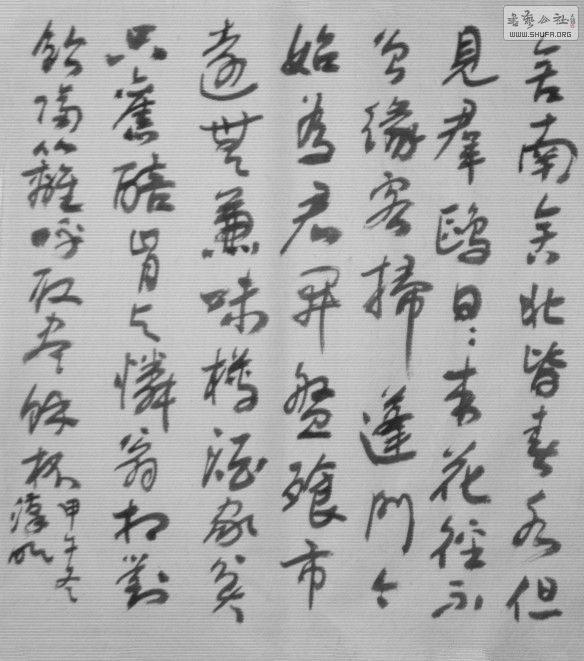 舍南舍北皆春水但
見羣鷗日〻來花徑不
曾緣客掃蓬門今
始為君開盤飱市
遠無兼味樽酒家貧
只舊醅肯与憐翁相對
飲隔籬呼取盡餘杯
甲午冬
書藝公社
WWW.SHUFA.ORG